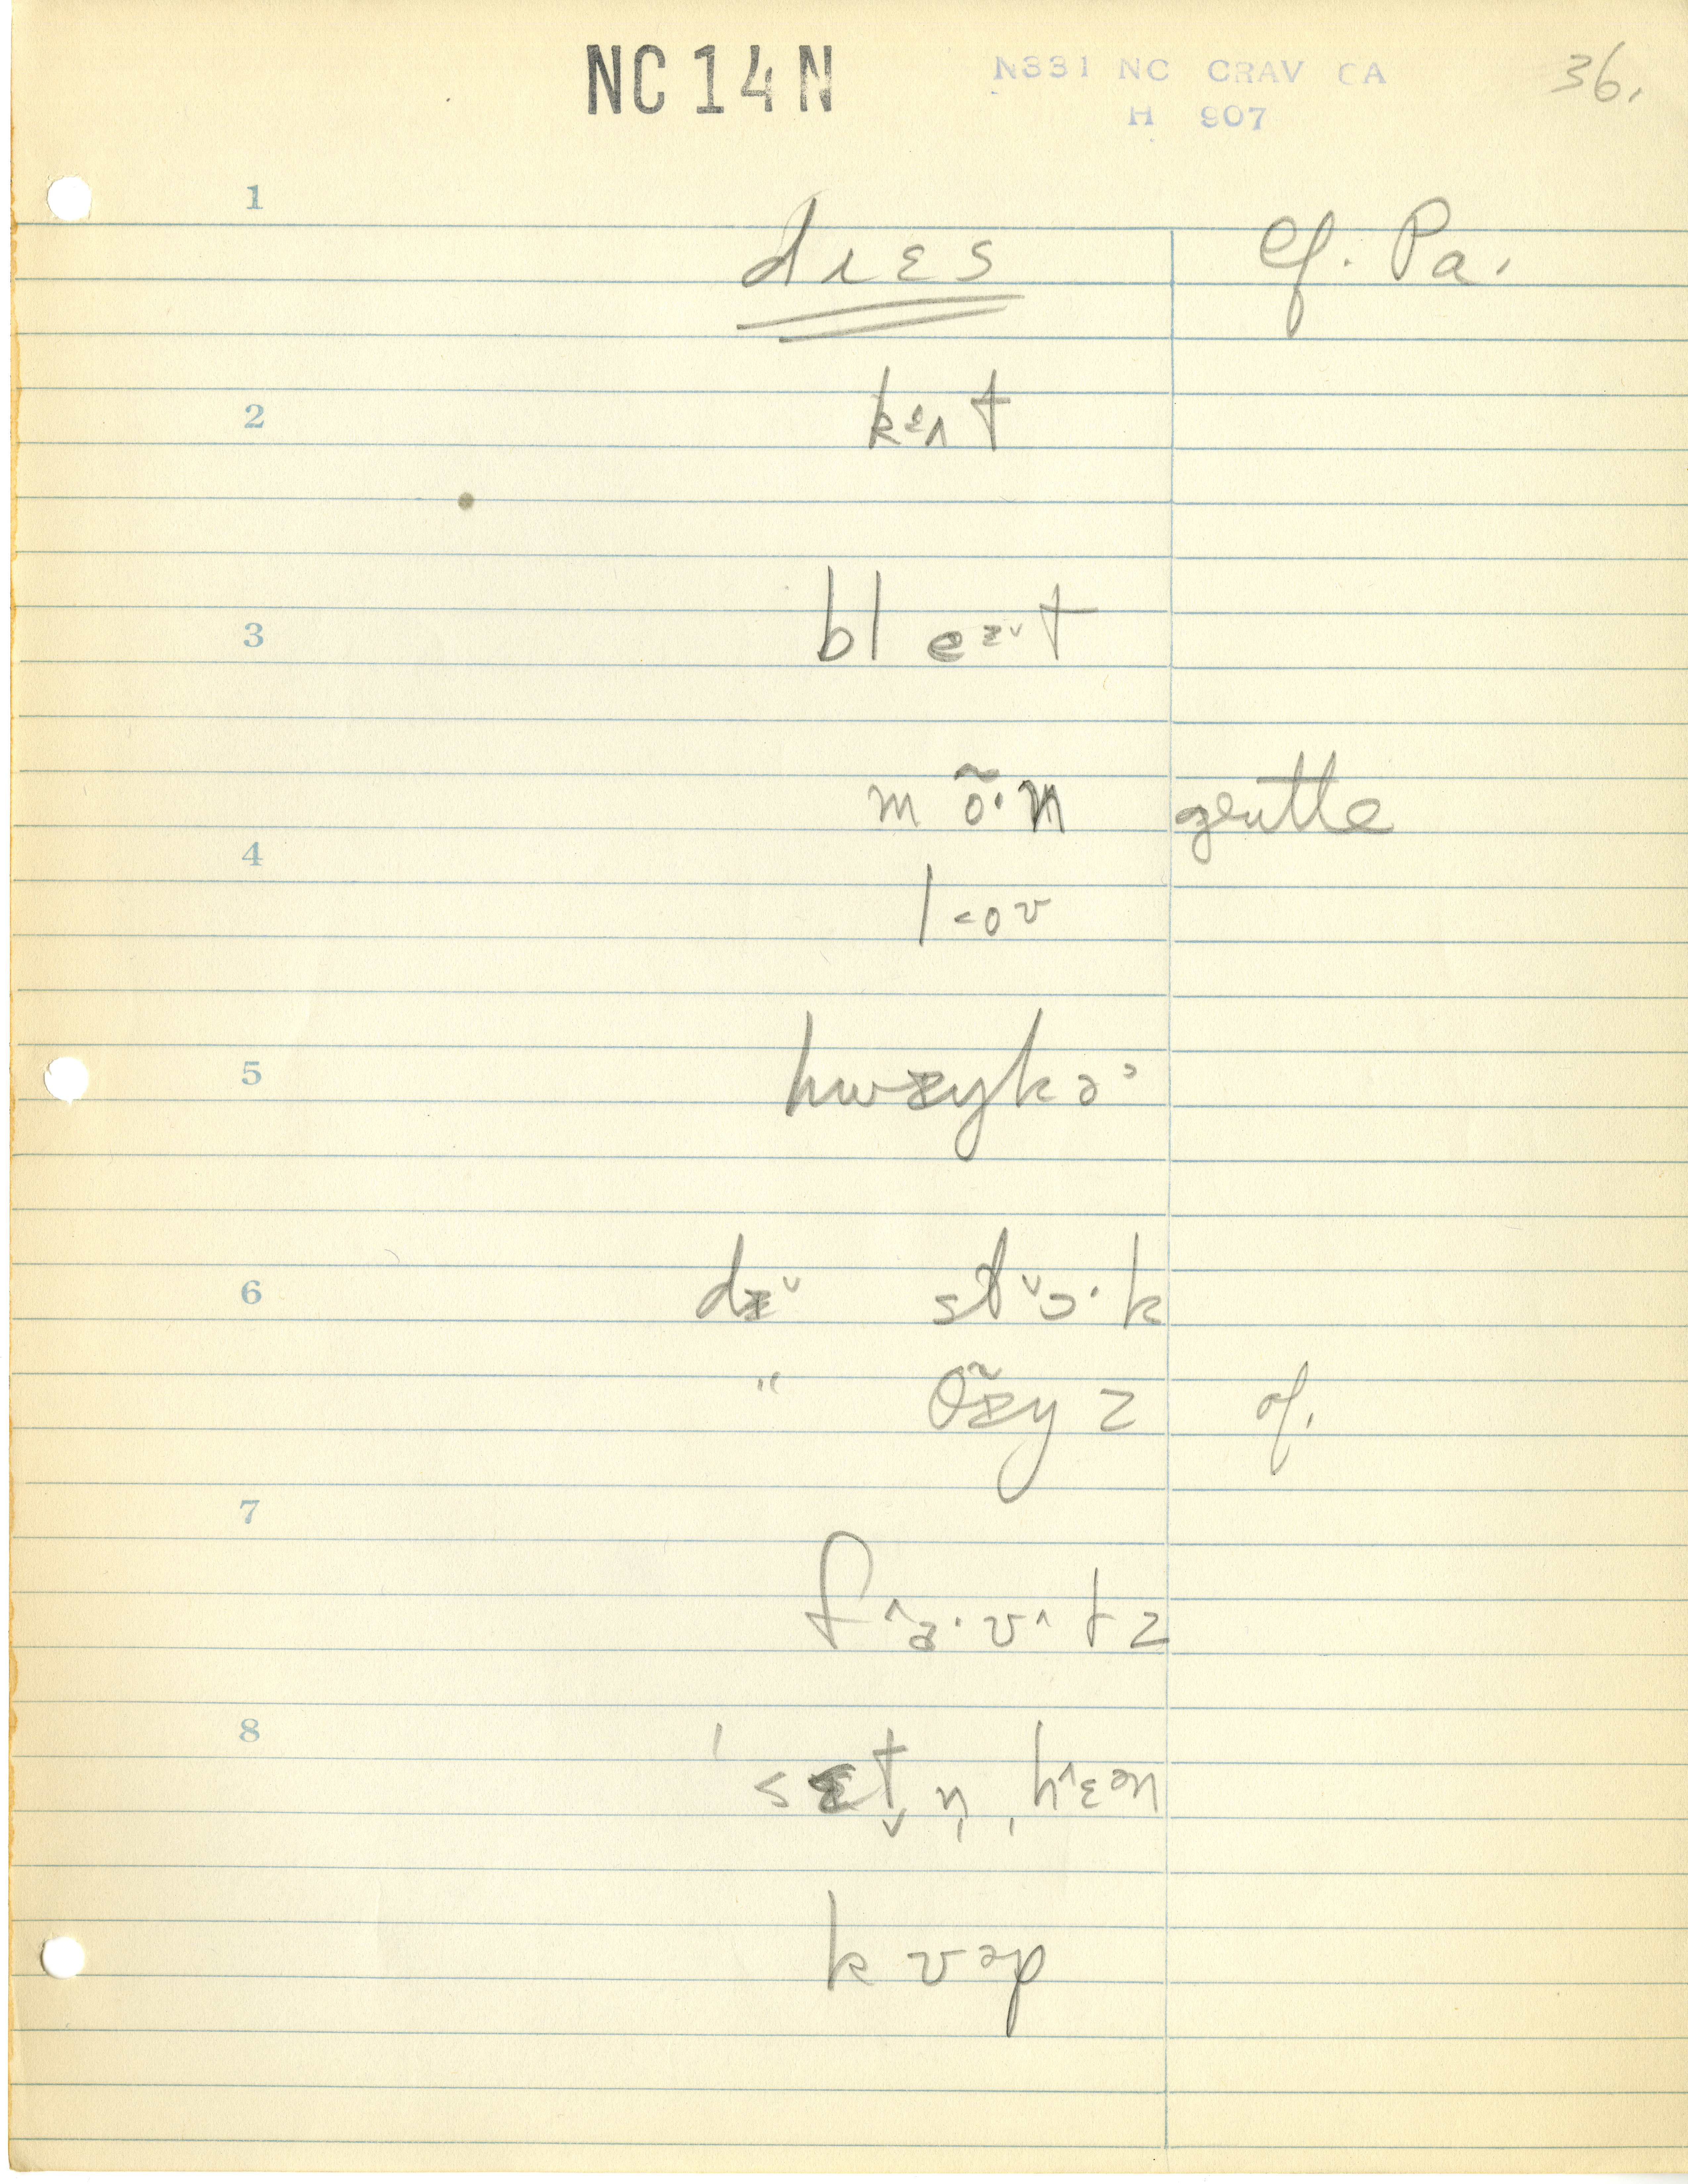 NC 14 N
N331 NC CRAV CA 36.
H 907
1
dɪɛs cf. Pa.
2
kɛʌt
3
bl eɛ˅t
mõ·m gentle
4
l<oʊ
5
hwɛykə˒
6
dɛ˅ st˅ɔ·k
" õɛyz cf.
7
f^a·v^tz
8
ˈsɛt̬n̩ˌh^ɛən
kʊəp